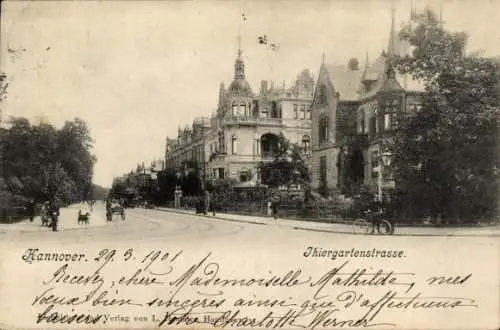 Hannover, 29.3.1901 Thiergartenstrasse.
Recevez, chère Mademoiselle Mathilde, mes
vœux bien sincères ainsi que d'affectueux
baisers de votre Charlotte Werner
Verlag von L.